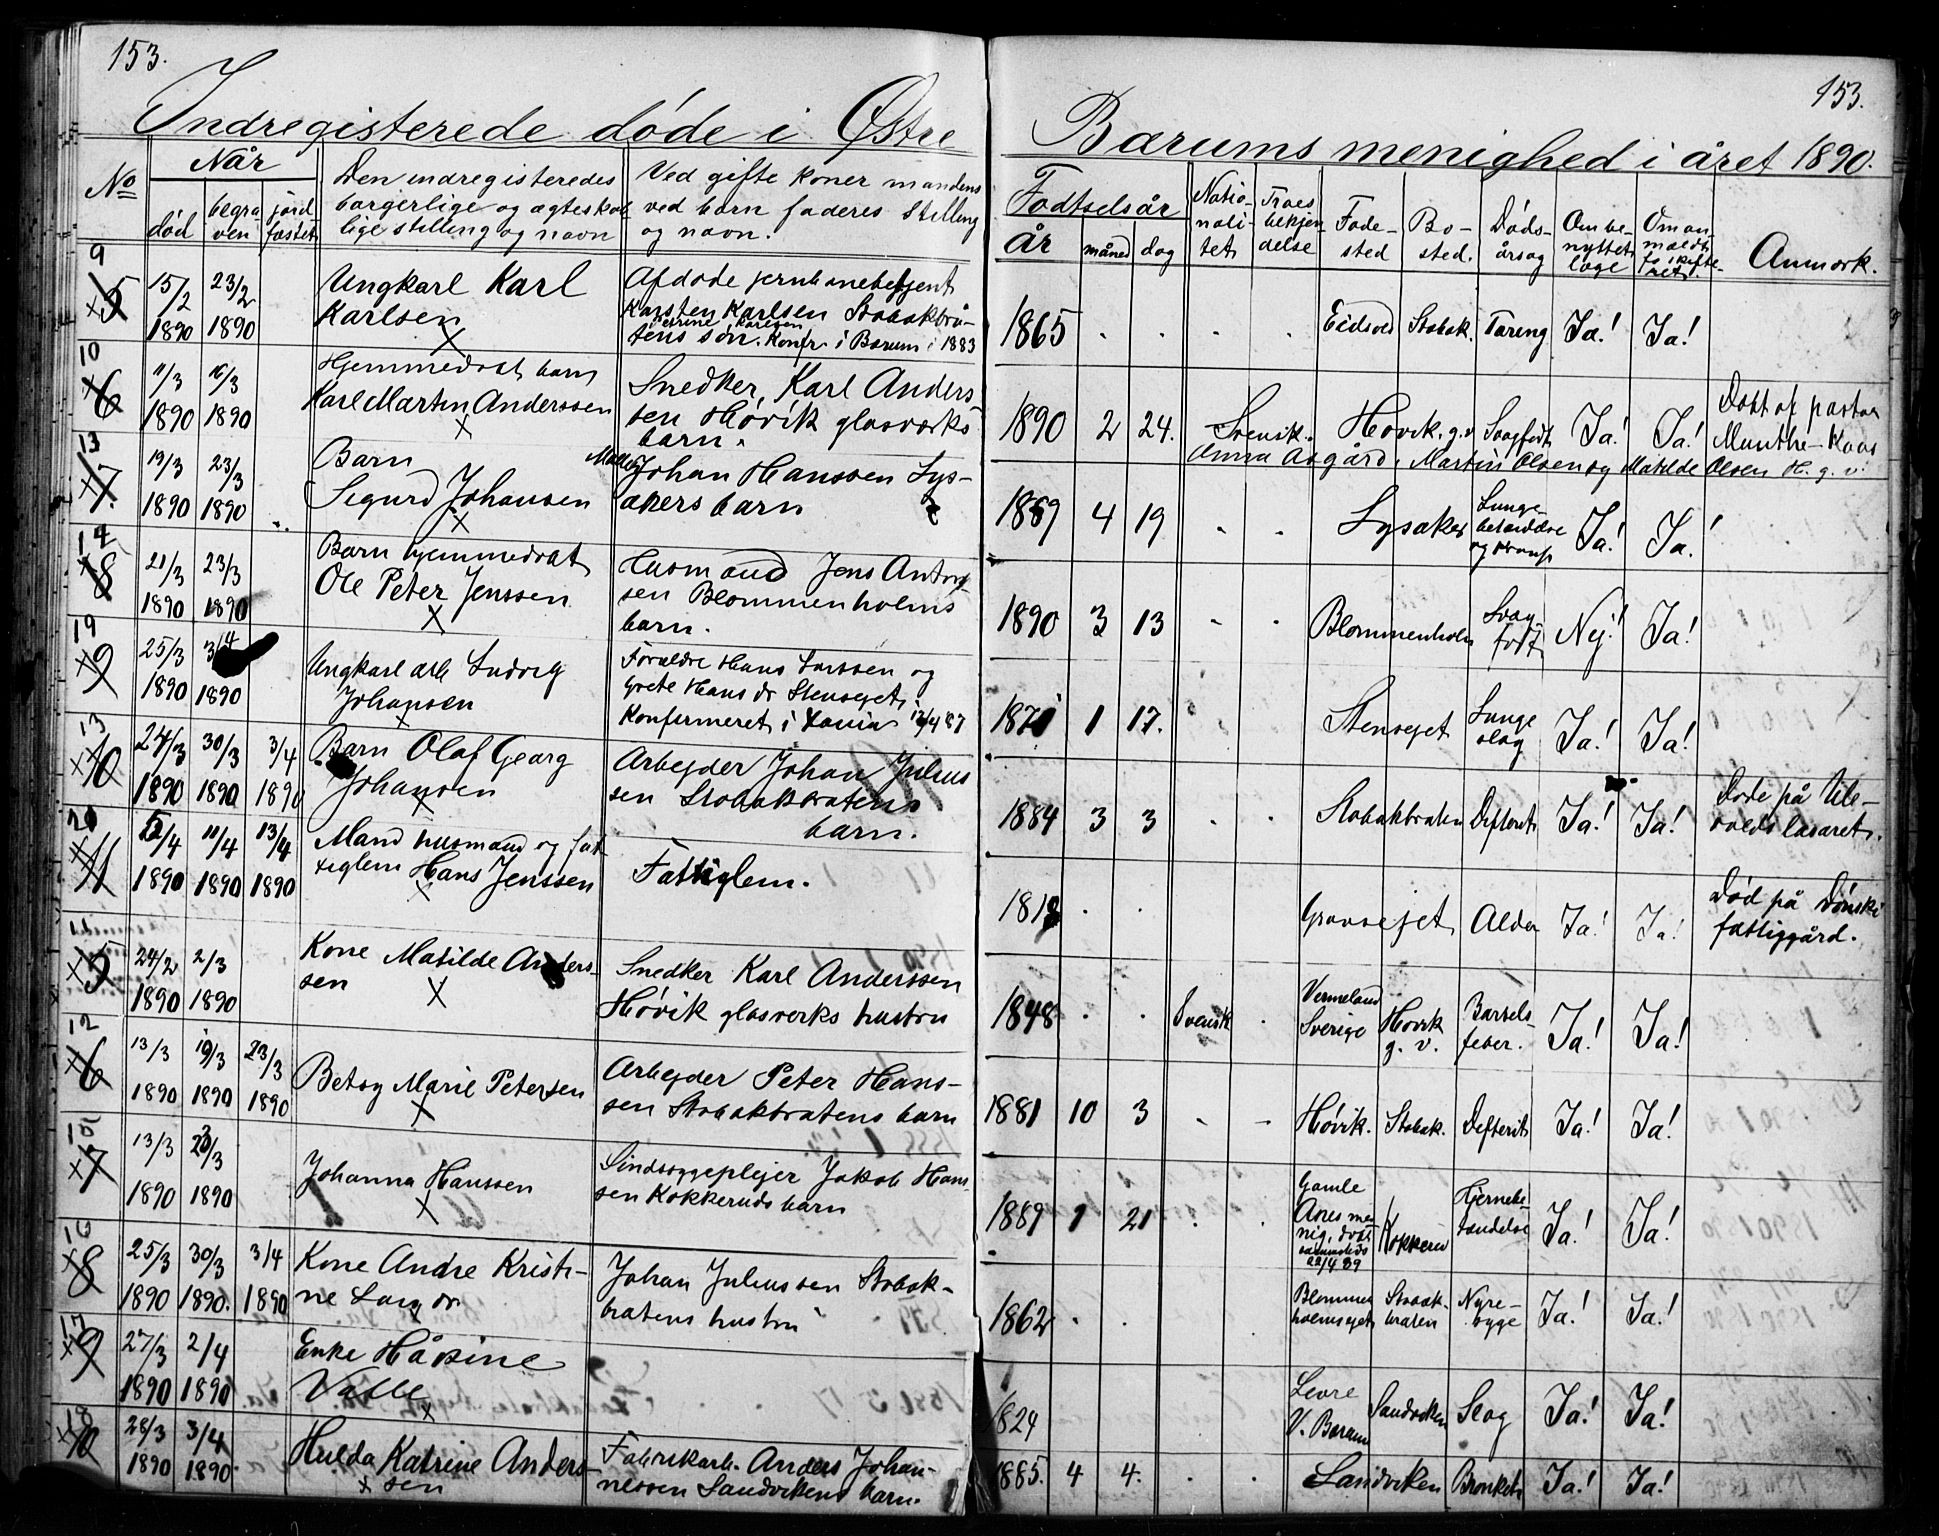 153.
153.
Indregisterede døde i Østre Bærums menighed i året 1890.
No
Når
død
begra-
ven
jord-
fæstet
Den indregisteredes
borgerlige og ægteskab-
lige stilling og navn
Ved gifte koner mandens
ved barn faderes stilling
og navn.
Fødselsår
år
måned
dag
Natio-
nali-
tet
Troes
bekjen-
delse
Føde-
sted
Bo-
sted.
Døds-
årsag
Om be-
nyttet
læge
Om an-
meldt
to skifte-
ret
Anmærk.
9
5
15/2 1890
23/2 1890
Ungkarl Karl
Karlsen
Afdøde jernbanebetjent
Karsten Karlsen Stabækbrå-
tens søn. Konfr. i Bærum i 1883
1865
Eidsvold
Stabæk.
Tæring
Ja!
Ja!
10
6
11/3 1890
16/3 1890
Hjemmedøbt barn
Karl Martin Anderssen
Snedker, Karl Anders
sen Høvik glasværks
barn.
1890
2
24.
Svensk.
Høvik. g. v.
Svagfødt
Ja!
Ja!
Døbt af pastor
Munthe-Kaas
Anna Asgård, Martin Olsen og Matilde Olsen H. g. v.
13
7.
19/3 1890
23/3 1890
Barn
Sigurd Johansen
Møller
Johan Hanssen Lys-
akers barn
1889
4
19
Lysaker
Lunge-
betændelse
Ja!
Ja!
14
8
21/3 1890
23/3 1890
Barn hjemmedøbt
Ole Peter Jenssen
Husmand Jens Anton
sen Blommenholms
barn.
1890
3
13
Blommenholm
Svag-
født
Nej!
Ja!
19
9
25/3 1890
3/4 1890
Ungkarl arb. Ludvig
Johansen
Forældre Hans Larssen og
Grete Hans dr Stensejet.
Konfirmeret i Xania 12/4 87
1871
1
17.
Stensejet
Lunge
slag
Ja!
Ja!
13
10
24/3 1890
30/3 1890
3/4 1890
Barn Olaf Georg
Johansen
Arbejder Johan Julius
sen Stabækbråtens
barn.
1884
3
3
Stabækbråten
Difterit
Ja!
Ja!
Døde på Ule-
volds lasaret.
20
11
12/4 1890
11/4 1890
13/4 1890
Mand husmand og fat-
tiglem Hans Jenssen
Fattiglem.
1818
Gravsejet
Alder
Ja!
Ja!
Død på Dønski
fattiggård.
11
5
24/2 1890
2/3 1890
Kone Matilde Anders-
sen
Snedker Karl Anderssen
Høvik glasverks hustru
1848
Svensk
Vermeland
Sverige
Høvik
g. v.
Barsels-
feber.
Ja!
Ja!
12
6
13/3 1890
19/3 1890
23/3 1890
Betsy Marie Petersen
Arbejder Peter Hans-
sen Stabækbråtens barn
1881
10
3
Høvik.
Stabæk.
Difterit
Ja!
Ja!
15
7
13/3 1890
23/3 1890
Johanna Hanssen
Sindssygeplejer Jakob Hans-
sen Kokkeruds barn
1889
1
21
Gamle
Akers me-
nig. døbt
sammesteds
22/4 89
Kokkerud
Hjernebe-
tændelse
Ja!
Ja!
16
8
25/3 1890
30/3 1890.
3/4 1890
Kone Andre Kristi-
ne Lars dr.
Johan Juliussen Stabæk-
bråtens hustru
1862
Blommen-
holmsejet
Stabæk-
bråten
Nyre-
syge
Ja!
Ja!
17
9
27/3 1890
2/4 1890
Enke Håsine
Valle
1824
Levre
V. Bærum
Sandviken
Slag
Ja!
Ja!
18
10
28/3 1890
3/4 1890.
Hulda Katrine Anders-
sen
Fabrikarb. Anders Johan-
nessen Sandvikens barn.
1885.
4
4.
Sandviken
Bronkit
Ja!
Ja!